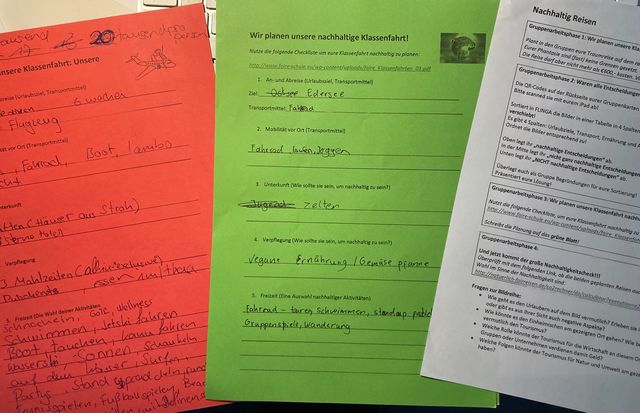 tausend
20 tausend pro
person
unsere Klassenfahrt: Unsere
Anreise (Urlaubsziel, Transportmittel)
6 wochen
Flugzeug
vor Ort (Transportmittel)
Fahrrad, Boot, lambo
Unterkunft
(Häuser aus Stroh)
Verpflegung
3 Mahlzeiten (All inclusive)
essen
5. Freizeit (Die Wahl deiner Aktivitäten)
Schnorcheln, Golf, Wellness
Schwimmen, Jetski fahren
Boot, tauchen, kanu fahren
Wasserski, Sonnen, schaukeln
auf dem Wasser, Surfen,
Partys, Stand up paddeln,
Fußballspielen,
Wir planen unsere nachhaltige Klassenfahrt!
Nutze die folgende Checkliste um eure Klassenfahrt nachhaltig zu planen:
http://www.faire-schule.eu/wp-content/uploads/faire_Klassenfahrten_03.pdf
1. An- und Abreise (Urlaubsziel, Transportmittel)
Ziel: Ostsee Edersee
Transportmittel: Fahrrad
2. Mobilität vor Ort (Transportmittel)
Fahrrad, laufen, Joggen
3. Unterkunft (Wie sollte sie sein, um nachhaltig zu sein?)
Jugend Zelten
4. Verpflegung (Wie sollte sie sein, um nachhaltig zu sein?)
Vegane Ernährung / Gemüse pfanne
5. Freizeit (Eine Auswahl nachhaltiger Aktivitäten)
Fahrrad-touren, Schwimmen, standup
Gruppenspiele, Wanderung
Nachhaltig Reisen
Gruppenarbeitsphase 1: Wir planen unsere
Plant in den Gruppen eure Traumreise auf dem
Eurer Phantasie sind (fast) keine Grenzen gesetzt
Die Reise darf aber nicht mehr als €600,- kosten.
Gruppenarbeitsphase 2: Waren alle Entscheidungen
Die QR-Codes auf der Rückseite eurer Gruppenkarte
Bitte scannt sie mit eurem iPad ab!
Sortiert in FLINGA die Bilder in einer Tabelle in 4 Spalten
verschiebt!
Es gibt 4 Spalten: Urlaubsziele, Transport, Ernährung und
Ordnet die Bilder entsprechend zu!
Oben legt ihr „nachhaltige Entscheidungen" ab.
in der Mitte legt ihr „nicht ganz nachhaltige Entscheidungen
Unten legt ihr „NICHT nachhaltige Entscheidungen" ab.
Überlegt euch als Gruppe Begründungen für eure Sortierung
Präsentiert eure Lösung!
Gruppenarbeitsphase 3: Wir planen unsere nachhaltige Klassenfahrt
Nutzt die folgende Checkliste, um eure Klassenfahrt nachhaltig zu
http://www.faire-schule.eu/wp-content/uploads/faire_Klassenf
Schreibt die Planung auf das grüne Blatt!
Gruppenarbeitsphase 4:
Und jetzt kommt der große Nachhaltigkeitscheck!!!
Überprüft mit dem folgenden Link, ob die beiden geplanten Reisen auch
Wahl im Sinne der Nachhaltigkeit sind:
Fragen zur Bildreihe:
Wie geht es den Urlaubern auf dem Bild vermutlich? Erleben sie
oder gibt es aus ihrer Sicht auch negative Aspekte?
Wie könnte es den Einheimischen am gezeigten Ort gehen? Wie be
vermutlich den Tourismus?
Welche Rolle könnte der Tourismus für die Wirtschaft an diesem Ort
Gruppen oder Unternehmen verdienen damit Geld?
Welche Folgen könnte der Tourismus für Natur und Umwelt am gezei
haben?